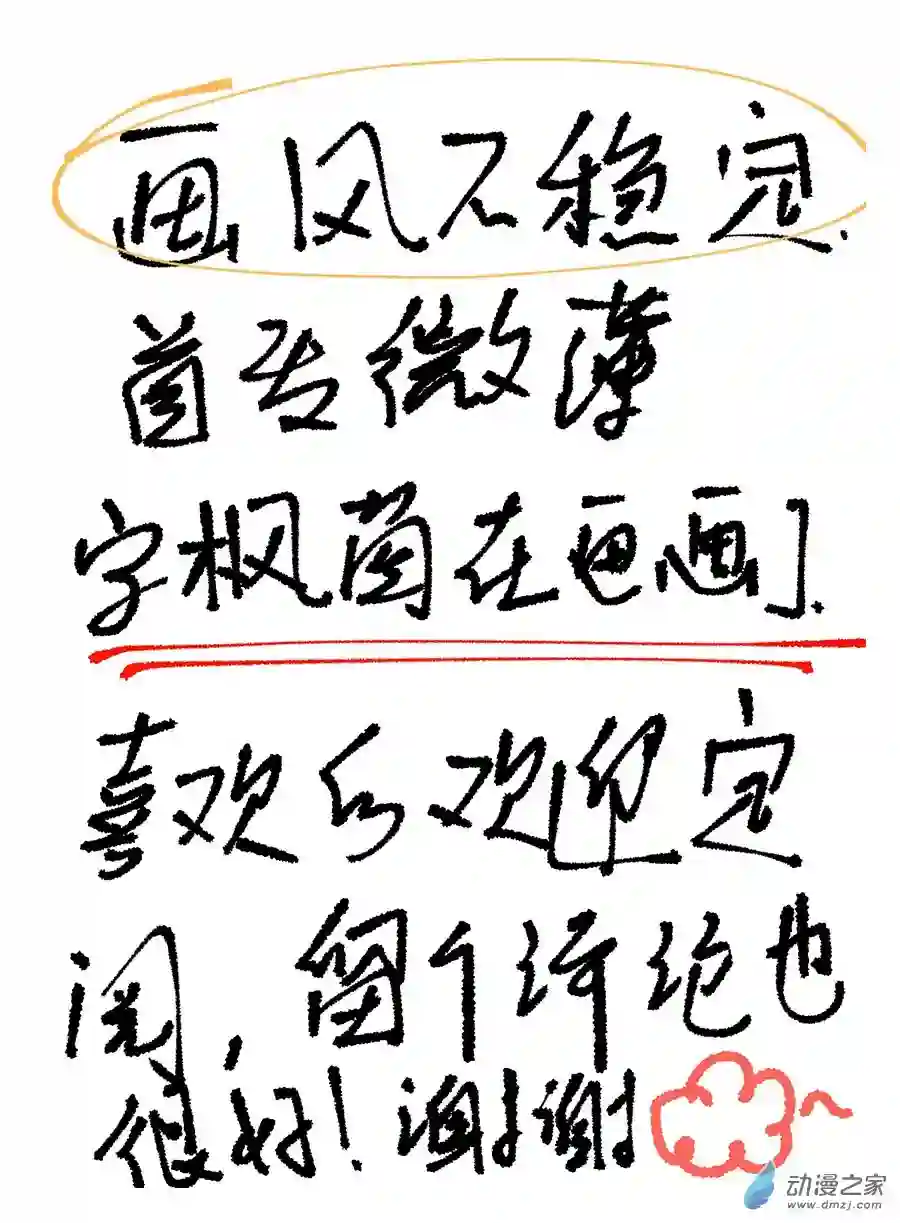 画风不稳定.
首发微薄
字枫茵在画画].
喜欢欢迎定
阅,留个评论也
很好!谢谢~
动漫之家
www.dmzj.com